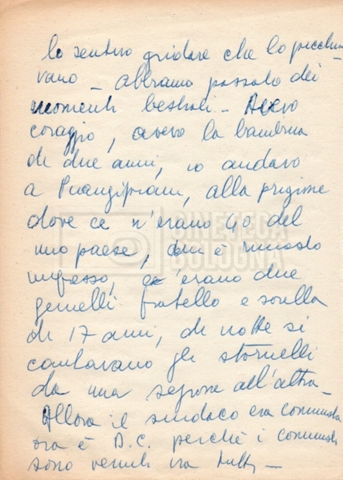 lo sentivo gridare che lo picchia
vano – abbiamo passato dei
momenti bestiali – Avevo
coraggio, avevo la bambina
di due anni, io andavo
a alla prigione
dove ce n'erano 40 del
mio paese, è rimasto
c'erano due
gemelli fratello e sorella
di 17 anni, di notte si
cantavano gli stornelli
da una all'altra –
Allora il sindaco era comunista
ora è D.C. perché i comunisti
sono venuti via tutti –
CINETECA
BOLOGNA